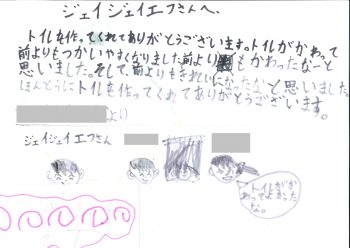 ジェイジェイエフさんへ、
トイレを作ってくれてありがとうございます。トイレがかわって
前よりもつかいやすくなりました前より もかわったなーと
思いました。そして、前よりもきれいになったなと思いました
ほんとうにトイレを作ってくれてありがとうございます。
より
ジェイジェイエフさん
トイレがか
わってよかった
な。